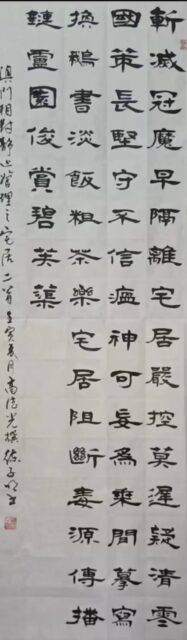 斬滅冠魔早隔離宅居嚴控莫遲疑清零
國策長堅守不信瘟神可妄為乘間摹寫
換鵝書淡飯粗茶樂宅居阻斷毒源傳播
鏈靈園俊賞碧芙蕖
澳門相對靜止管理之宅居二首壬寅夏月高光撰书